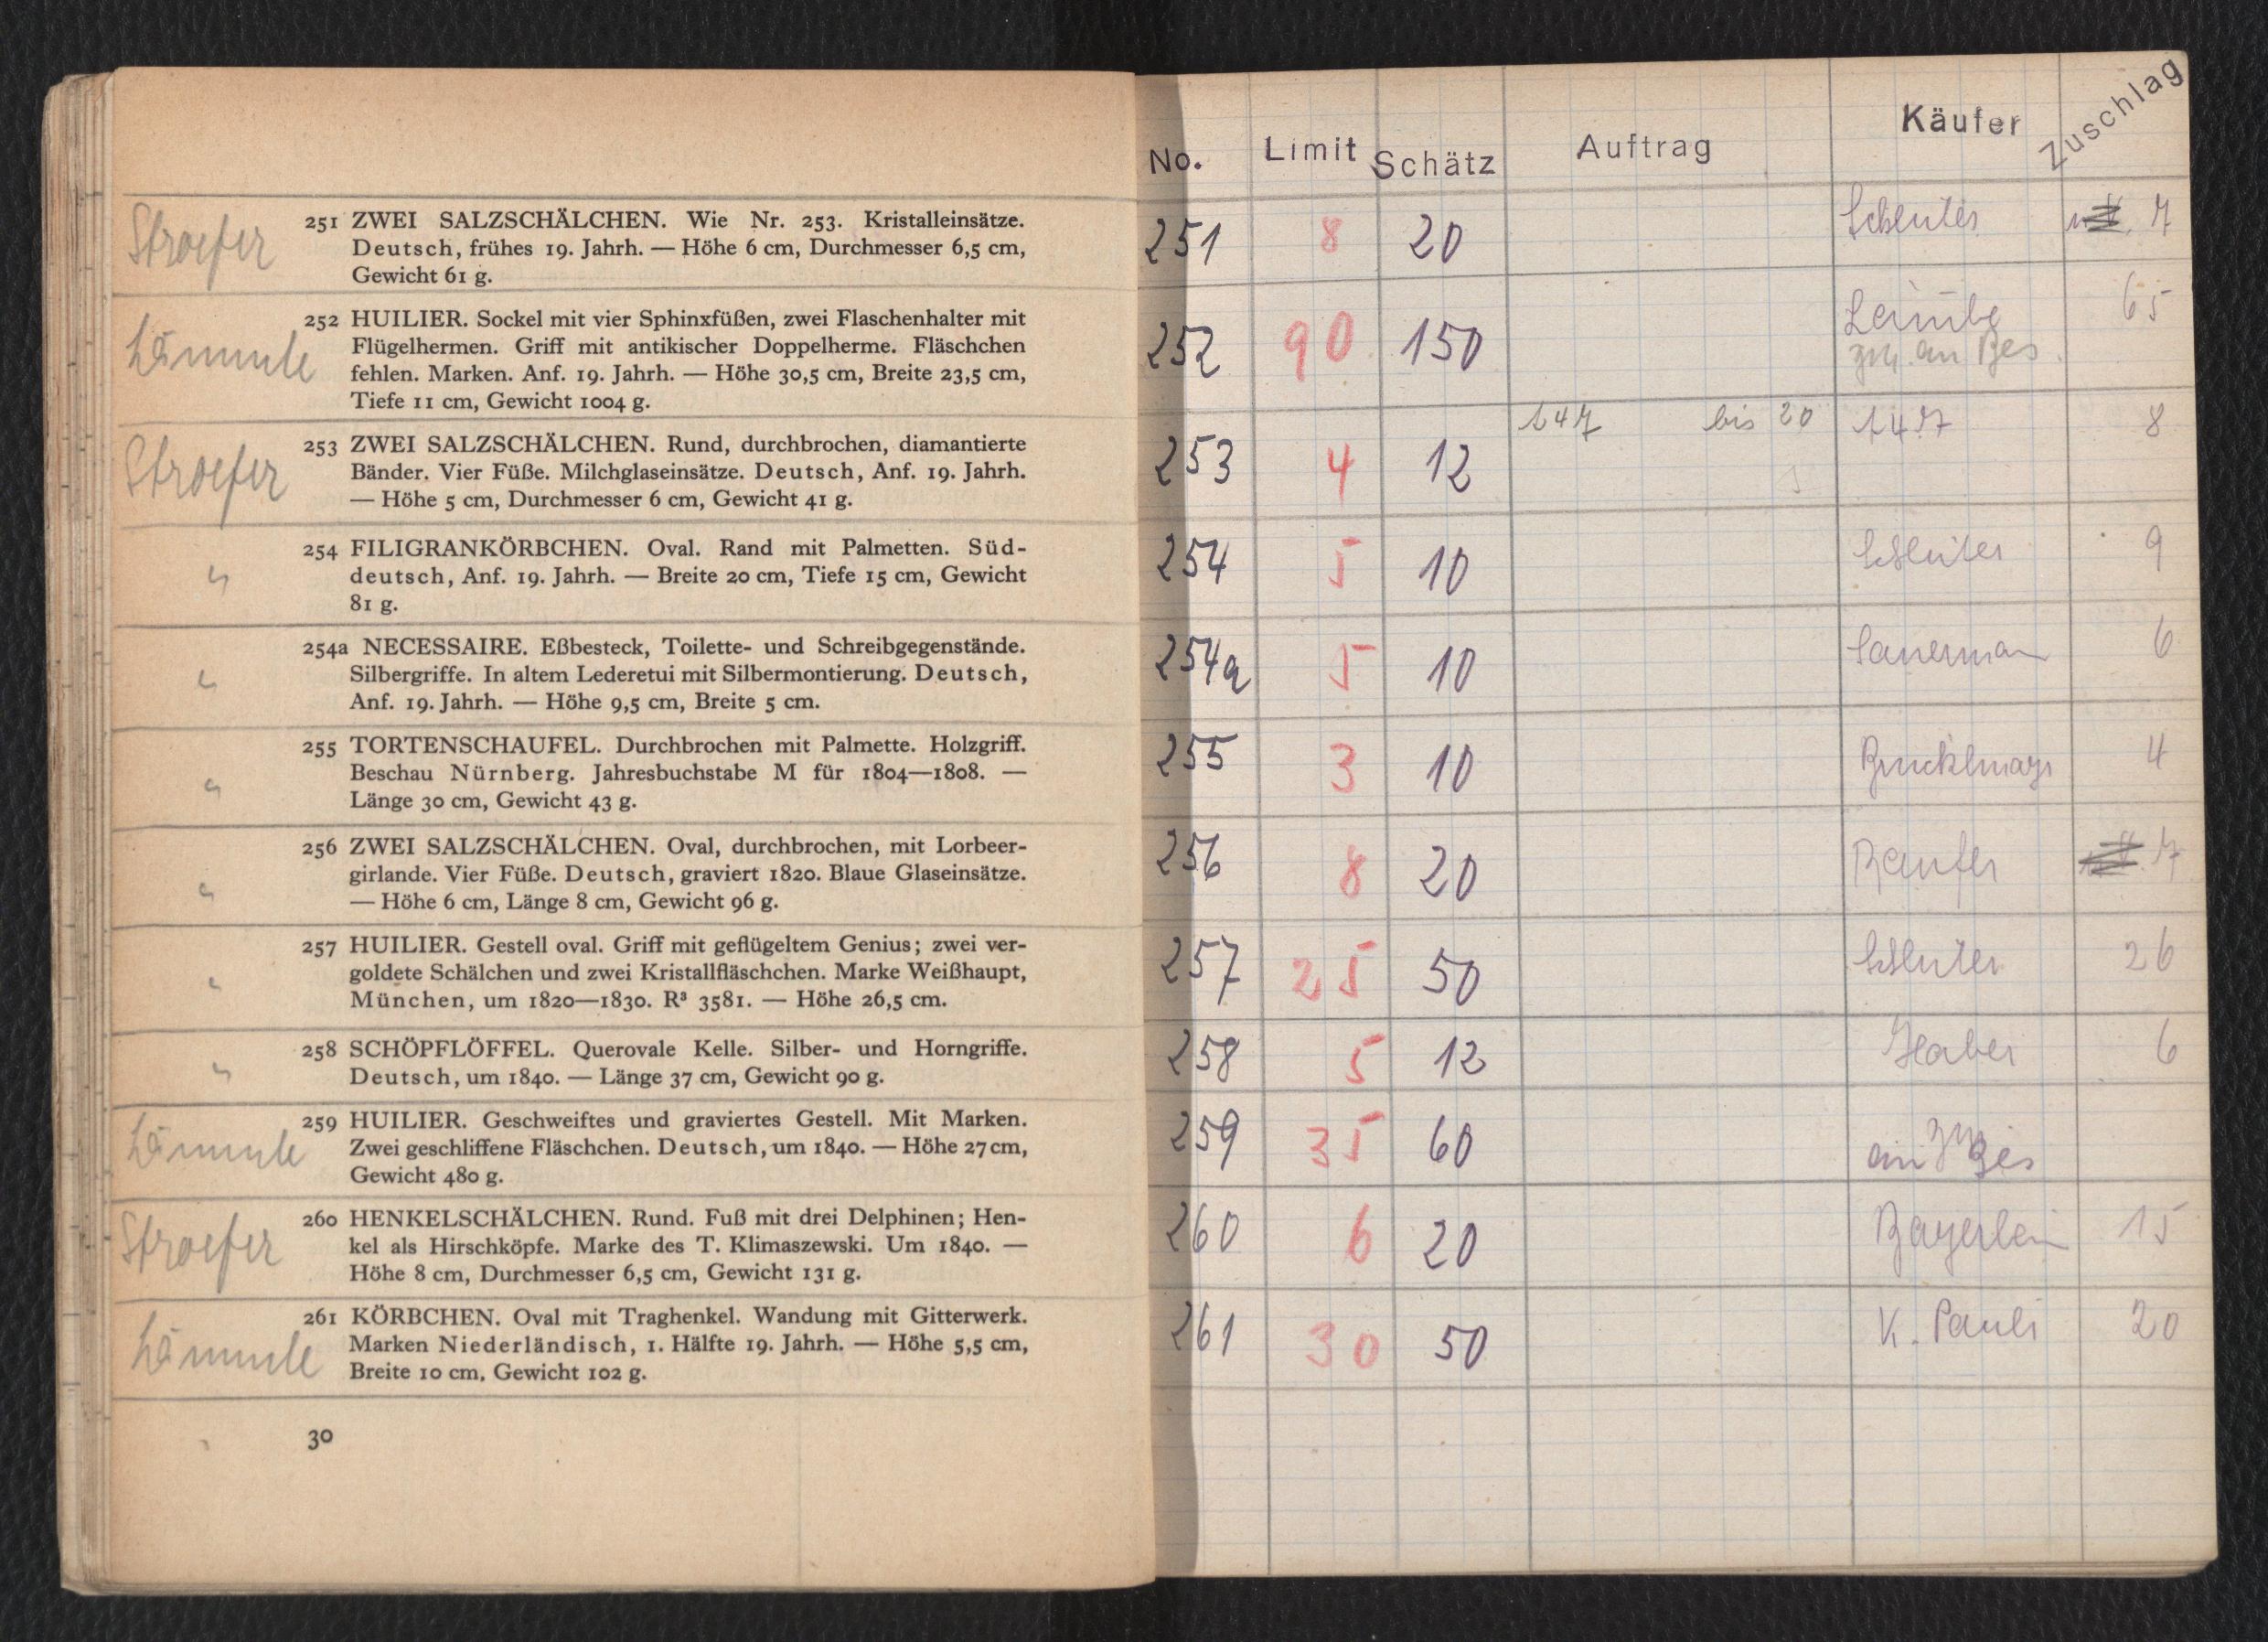 Stroefer
251 ZWEI SALZSCHÄLCHEN. Wie Nr. 253. Kristalleinsätze.
Deutsch, frühes 19. Jahrh. — Höhe 6 cm, Durchmesser 6,5 cm,
Gewicht 61 g.
Lämmle
252 HUILIER. Sockel mit vier Sphinxfüßen, zwei Flaschenhalter mit
Flügelhermen. Griff mit antikischer Doppelherme. Fläschchen
fehlen. Marken. Anf. 19. Jahrh. — Höhe 30,5 cm, Breite 23,5 cm,
Tiefe 11 cm, Gewicht 1004 g.
Stroefer
253 ZWEI SALZSCHÄLCHEN. Rund, durchbrochen, diamantierte
Bänder. Vier Füße. Milchglaseinsätze. Deutsch, Anf. 19. Jahrh.
— Höhe 5 cm, Durchmesser 6 cm, Gewicht 41 g.
"
254 FILIGRANKÖRBCHEN. Oval. Rand mit Palmetten. Süd-
deutsch, Anf. 19. Jahrh. — Breite 20 cm, Tiefe 15 cm, Gewicht
81 g.
"
254a NECESSAIRE. Eßbesteck, Toilette- und Schreibgegenstände.
Silbergriffe. In altem Lederetui mit Silbermontierung. Deutsch,
Anf. 19. Jahrh. — Höhe 9,5 cm, Breite 5 cm.
"
255 TORTENSCHAUFEL. Durchbrochen mit Palmette. Holzgriff.
Beschau Nürnberg. Jahresbuchstabe M für 1804—1808. —
Länge 30 cm, Gewicht 43 g.
"
256 ZWEI SALZSCHÄLCHEN. Oval, durchbrochen, mit Lorbeer-
girlande. Vier Füße. Deutsch, graviert 1820. Blaue Glaseinsätze.
— Höhe 6 cm, Länge 8 cm, Gewicht 96 g.
"
257 HUILIER. Gestell oval. Griff mit geflügeltem Genius; zwei ver-
goldete Schälchen und zwei Kristallfläschchen. Marke Weißhaupt,
München, um 1820—1830. R³ 3581. — Höhe 26,5 cm.
"
258 SCHÖPFLÖFFEL. Querovale Kelle. Silber- und Horngriffe.
Deutsch, um 1840. — Länge 37 cm, Gewicht 90 g.
Lämmle
259 HUILIER. Geschweiftes und graviertes Gestell. Mit Marken.
Zwei geschliffene Fläschchen. Deutsch, um 1840. — Höhe 27 cm,
Gewicht 480 g.
Stroefer
260 HENKELSCHÄLCHEN. Rund. Fuß mit drei Delphinen; Hen-
kel als Hirschköpfe. Marke des T. Klimaszewski. Um 1840. —
Höhe 8 cm, Durchmesser 6,5 cm, Gewicht 131 g.
Lämmle
261 KÖRBCHEN. Oval mit Traghenkel. Wandung mit Gitterwerk.
Marken Niederländisch, 1. Hälfte 19. Jahrh. — Höhe 5,5 cm,
Breite 10 cm, Gewicht 102 g.
30
No. Limit Schätz Auftrag Käufer Zuschlag
251 8 20 Schlüter 7
252 90 150 65
zur. an Bes.
253 4 12 147 bis 20 147 8
254 5 10 Schlüter 9
254a 5 10 6
255 3 10 Brucklmayr 4
256 8 20 7
257 25 50 Schlüter 26
258 5 12 Haber 6
259 35 60 zur
an Bes
260 6 20 Bayerlein 15
261 30 50 K. Pauli 20